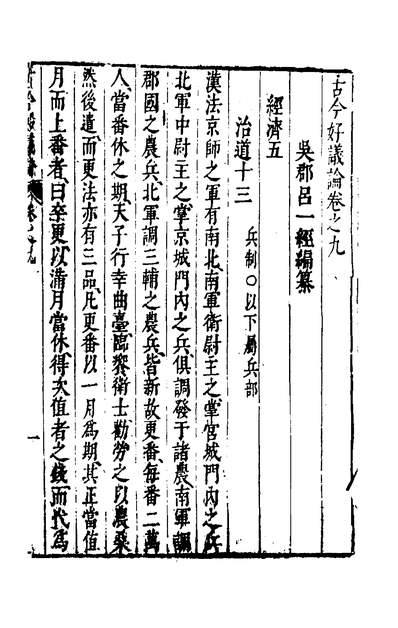 古今好議論卷之九
吳郡呂一經編纂
經濟五
治道十三 兵制○以下屬兵部
漢法京師之軍有南北南軍衛尉主之掌宮城門內之兵
北軍中尉主之掌京城門內之兵俱調發于諸農南軍調
郡國之農兵北軍調三輔之農兵皆新故更番每番二萬
人當番休之期天子行幸曲臺臨饗衛士勸勞之以農桑
然後遣而更法亦有三品凡更番以一月爲期其正當值
月而上番者曰卒更以滿月當休得次值者之錢而代爲
一